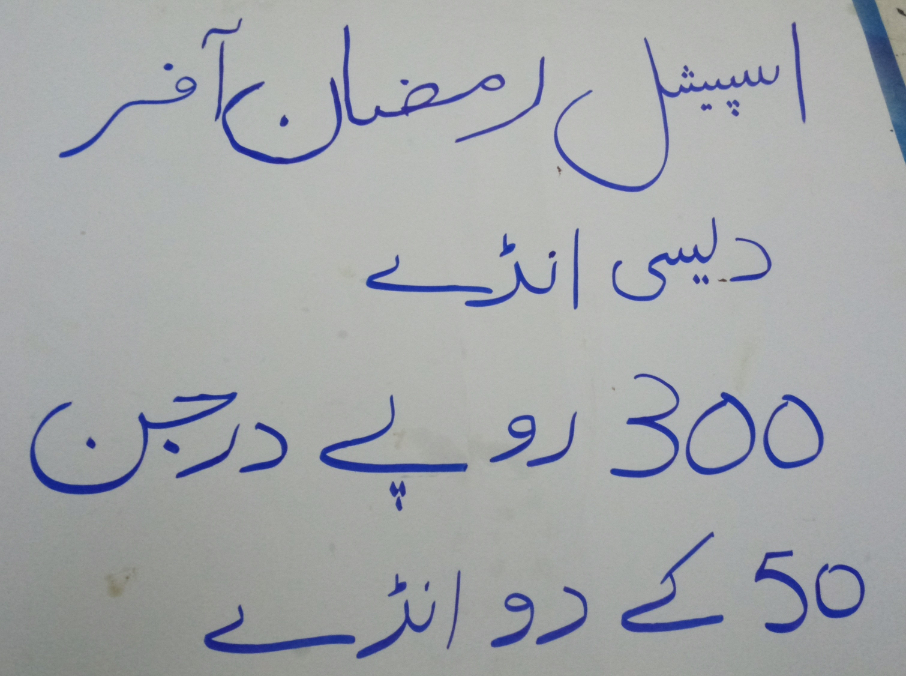 اسپیشل رمضان آفر
دیسی انڈے
300 روپے درجن
50 کے دو انڈے